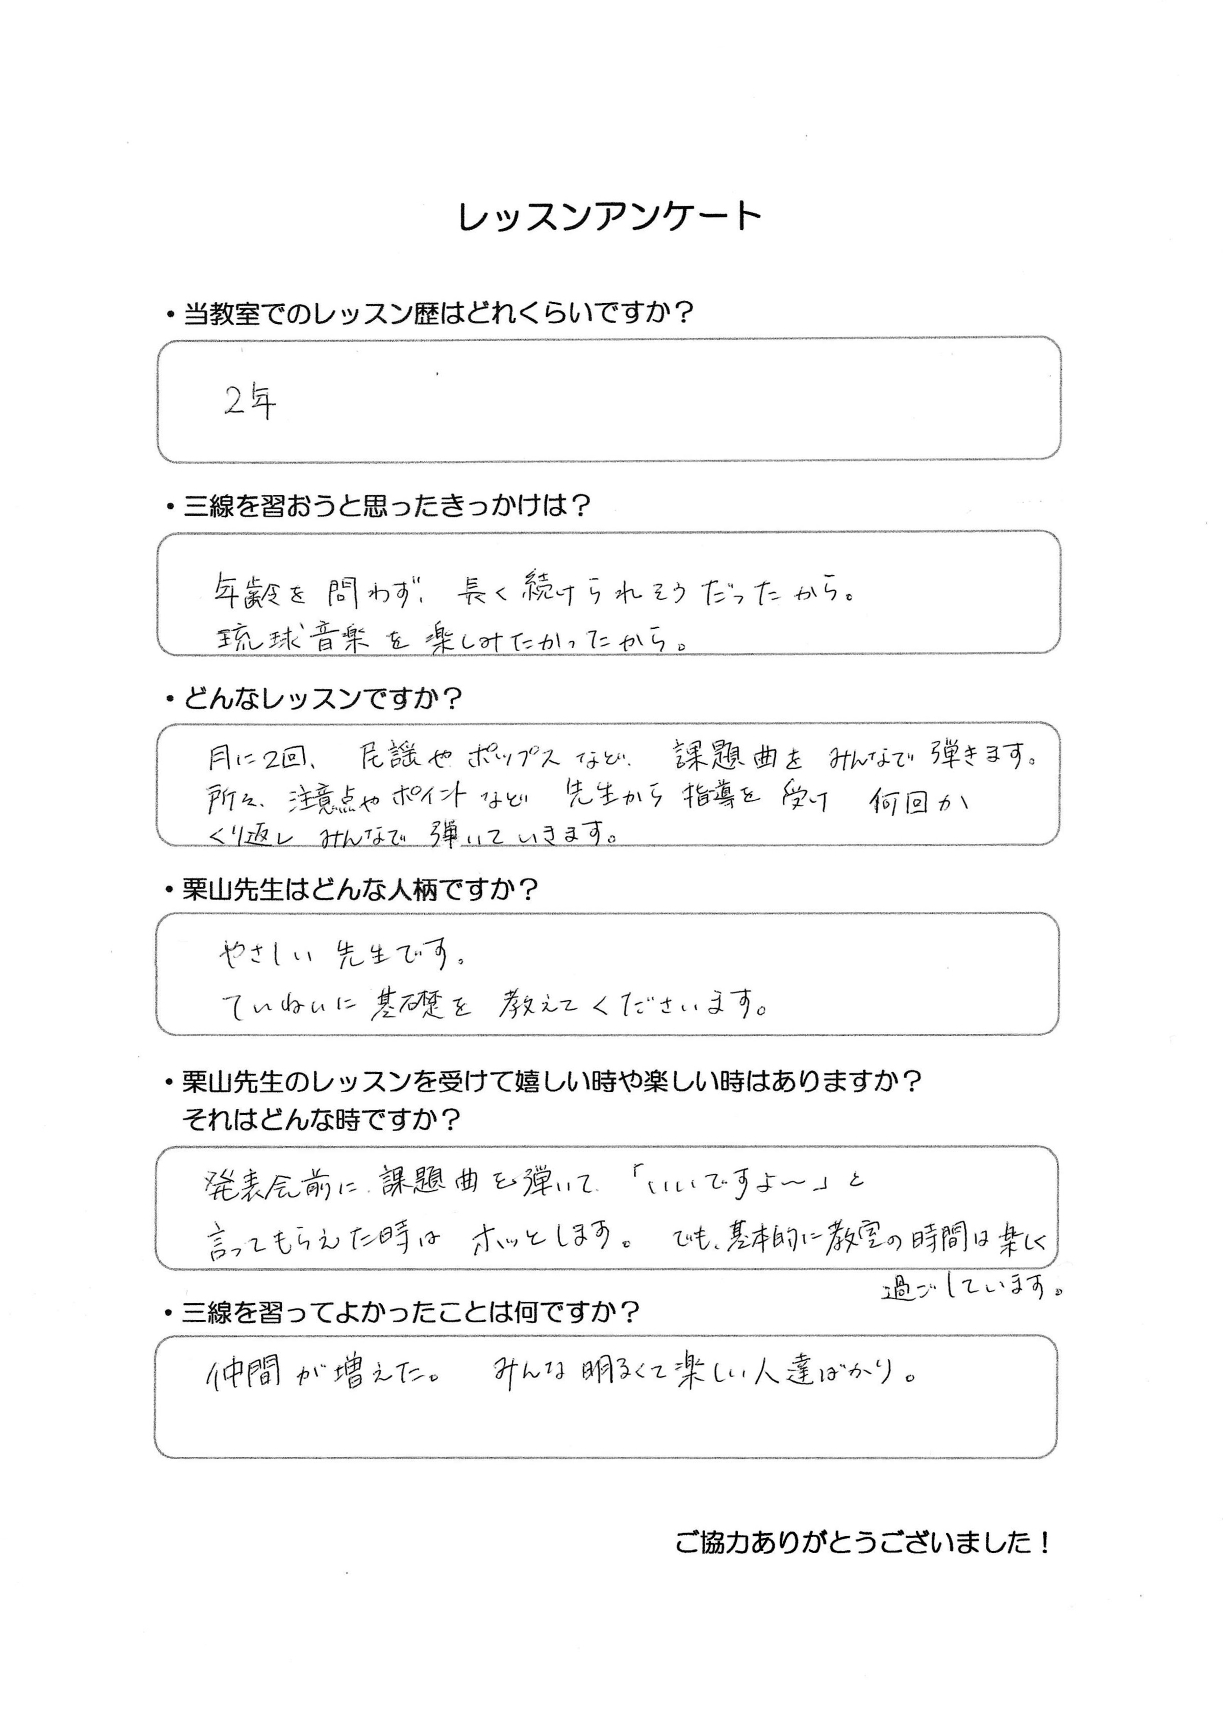 レッスンアンケート
・当教室でのレッスン歴はどれくらいですか？
2年
・三線を習おうと思ったきっかけは？
年齢を問わず、長く続けられそうだったから。
琉球音楽を楽しみたかったから。
・どんなレッスンですか？
月に2回、民謡やポップスなど、課題曲をみんなで弾きます。
所々、注意点やポイントなど先生から指導を受け何回か
くり返しみんなで弾いていきます。
・栗山先生はどんな人柄ですか？
やさしい先生です。
ていねいに基礎を教えてくださいます。
・栗山先生のレッスンを受けて嬉しい時や楽しい時はありますか？
それはどんな時ですか？
発表会前に課題曲を弾いて「いいですよ～」と
言ってもらえた時はホッとします。でも、基本的に教室の時間は楽しく
過ごしています。
・三線を習ってよかったことは何ですか？
仲間が増えた。みんな明るくて楽しい人達ばかり。
ご協力ありがとうございました！